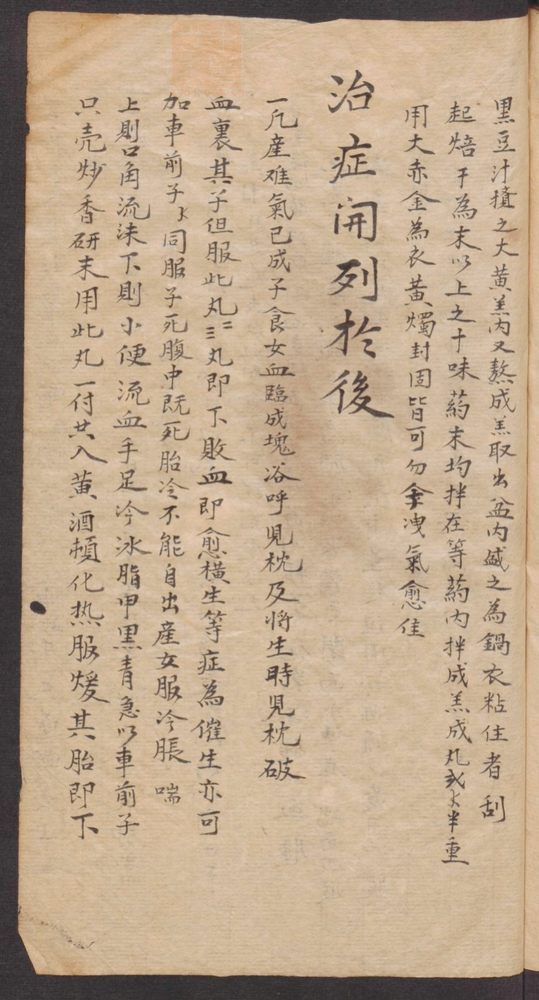 黑豆汁攙之大黄羔内又熬成羔取出盆内盛之為鍋衣粘住者刮
起焙干為末以上之十味葯末均拌在等葯内拌成羔成丸半重
用大赤金為衣黄燭封固皆可勿洩氣愈佳
治症開列於後
一凢産难氣已成子食女血臨成塊浴呼児枕及將生時児枕破
血裏其子但服此丸三丸即下敗血即愈横生等症為催生亦可
加車前子同服子死腹中既死胎冷不能自出産女服冷脹喘
上則口角流沫下則小便流血手足冷冰脂甲黒青急以車前子
只売炒香研末用此丸一付共入黄酒頓化热服煖其胎即下